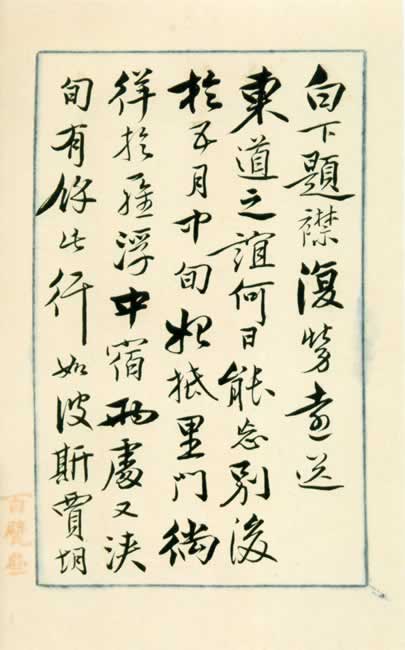 白下題襟復勞遠送
東道之誼何日能忘別後
於五月中旬始抵里門徜
徉於羅浮中宿兩處又浹
旬有餘此行如波斯賈胡